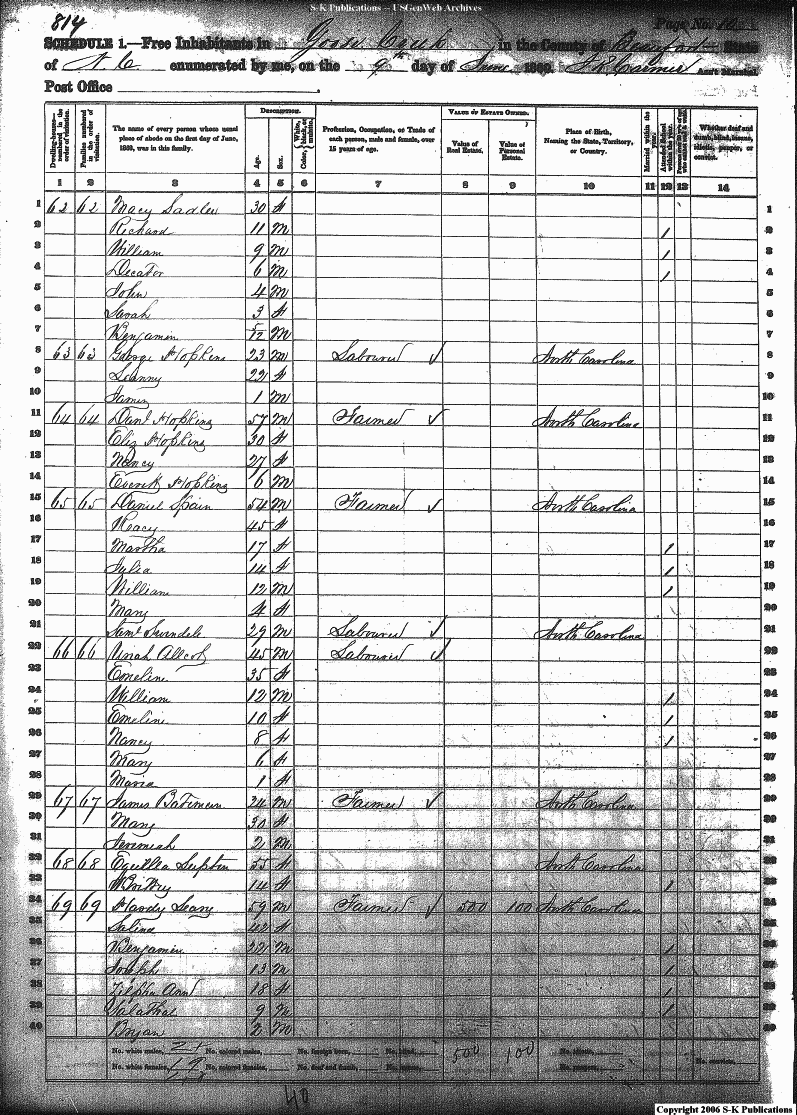 S-K Publications -- USGenWeb Archives
814 Page No.
SCHEDULE 1.—Free Inhabitants in Goose Creek in the County of Beaufort State
of N C enumerated by me, on the 9th day of June 1860. Ass't Marshal
Post Office
Dwelling-houses—numbered in the order of visitation. Families numbered in the order of visitation. The name of every person whose usual place of abode on the first day of June, 1860, was in this family. DESCRIPTION. Age. Sex. Color, White, black, or mulatto. Profession, Occupation, or Trade of each person, male and female, over 15 years of age. VALUE OF ESTATE OWNED. Value of Real Estate. Value of Personal Estate. Place of Birth, Naming the State, Territory, or Country. Married within the year. Attended School within the year. Whether deaf and dumb, blind, insane, idiotic, pauper, or convict.
1 2 3 4 5 6 7 8 9 10 11 12 13 14
1 62 62 Macy Sadler 30 f 1
2 Richard 11 m 1 2
3 William 9 m 1 3
4 Decator 6 m 1 4
5 John 4 m 5
6 Sarah 3 f 6
7 Benjamin 5/12 m 7
8 63 63 George Hopkins 23 m Labourer ✓ North Carolina 8
9 22 f 9
10 1 m 10
11 64 64 Danl Hopkins 57 m Farmer ✓ North Carolina 11
12 Eliz Hopkins 30 f 12
13 Nancy 27 f 13
14 Hopkins 6 m 14
15 65 65 Daniel Spain 54 m Farmer ✓ North Carolina 15
16 45 f 16
17 Martha 17 f 1 17
18 Julia 14 f 1 18
19 William 12 m 1 19
20 Mary 4 f 20
21 Saml Swindell 29 m Labourer ✓ North Carolina 21
22 66 66 45 m Labourer ✓ 22
23 Emeline 35 f 23
24 William 12 m 1 24
25 Emeline 10 f 1 25
26 Nancy 8 f 1 26
27 Mary 6 f 27
28 Maria 1 f 28
29 67 67 James Bateman 24 m Farmer ✓ North Carolina 29
30 Mary 30 f 30
31 Jeremiah 2 m 31
32 68 68 55 f North Carolina 32
33 14 f 1 33
34 69 69 Hardy Leary 59 m Farmer ✓ 500 100 North Carolina 34
35 Salina 42 f 35
36 Benjamin 22 m 1 36
37 Joseph 13 m 1 37
38 Zilpha Ann 18 f 1 38
39 9 m 1 39
40 Bryan 2 m 40
No. white males, No. colored males, No. foreign born, No. blind, 500 100 No. idiotic,
No. white females, No. colored females, No. deaf and dumb, No. insane, No. paupers, No. convicts.
40
Copyright 2006 S-K Publications